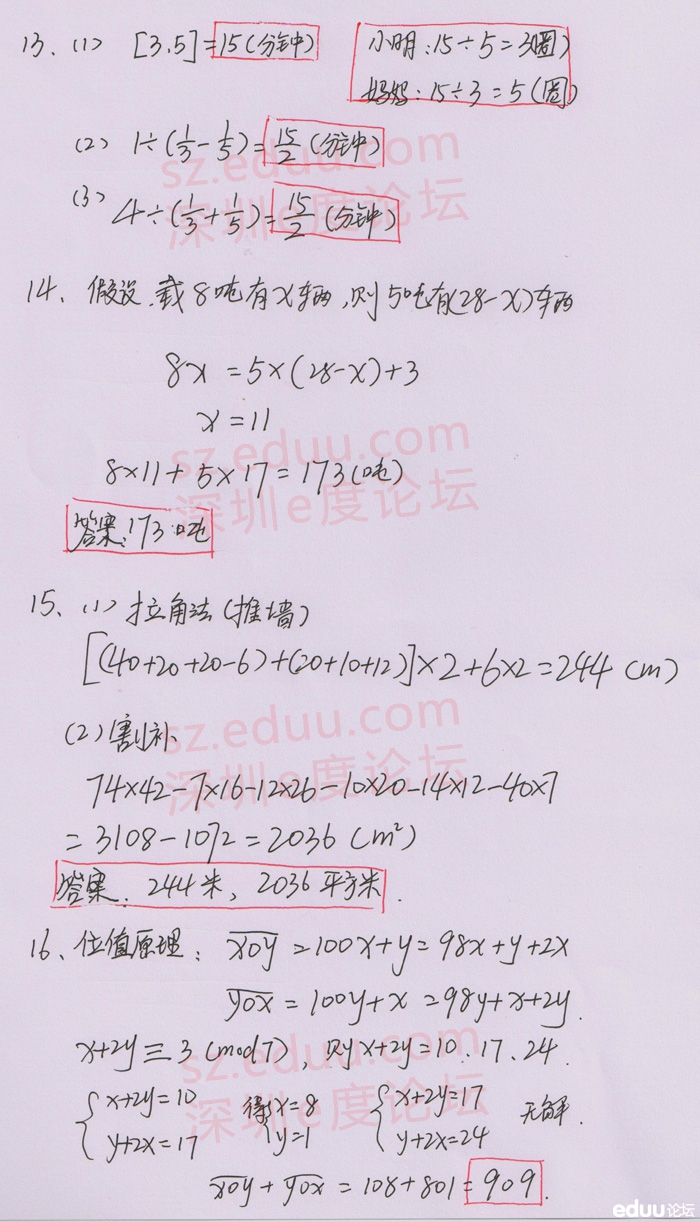 13、(1) [3,5]=15(分钟) 小明:15÷5=3(圈)
妈妈:15÷3=5(圈)
(2) 1÷(1/3-1/5)=15/2(分钟)
sz.eduu.com
(3) 4÷(1/3+1/5)=15/2(分钟)
深圳e度论坛
14、假设,载8吨有x车辆,则5吨有(28-x)车辆
8x=5×(28-x)+3
x=11
sz.eduu.com
8×11+5×17=173(吨)
深圳e度论坛
答案:173吨
15、(1)拉角法(推墙)
[(40+20+20-6)+(20+10+12)]×2+6×2=244(m)
sz.eduu.com
(2)割补
深圳e度论坛
74×42-7×16-12×26-10×20-14×12-40×7
=3108-1072=2036(m²)
答案:244米,2036平方米.
16、位值原理:x0y=100x+y=98x+y+2x
y0x=100y+x=98y+x+2y.
x+2y≡3(mod7),则x+2y=10.17.24.
sz.eduu.com
{x+2y=10 得{x=8 {x+2y=17 无解.
y+2x=17 y=1 y+2x=24
深圳e度论坛
x0y+y0x=108+801=909.
eduu论坛